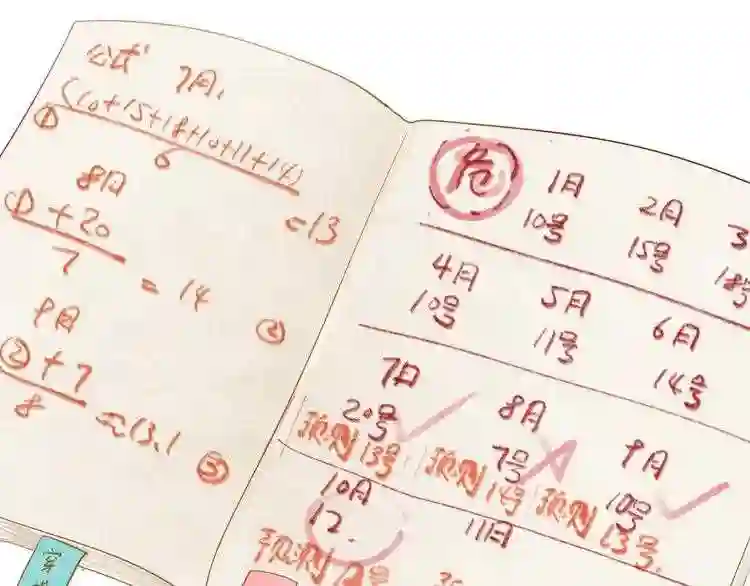 公式 7月:
① (10+15+18+10+11+14)
6
=13
8月
① +20
7
= 14
②
9月
② +7
8
≈13.1
③
危 1月 2月 3
10号 15号 18号
4月 5月 6月
10号 11号 14号
7月 8月 9月
20号 7号 10号
预测13号 预测14号 预测13号.
10月 11月
12.
预测